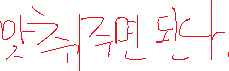 맞춰주면 된다.